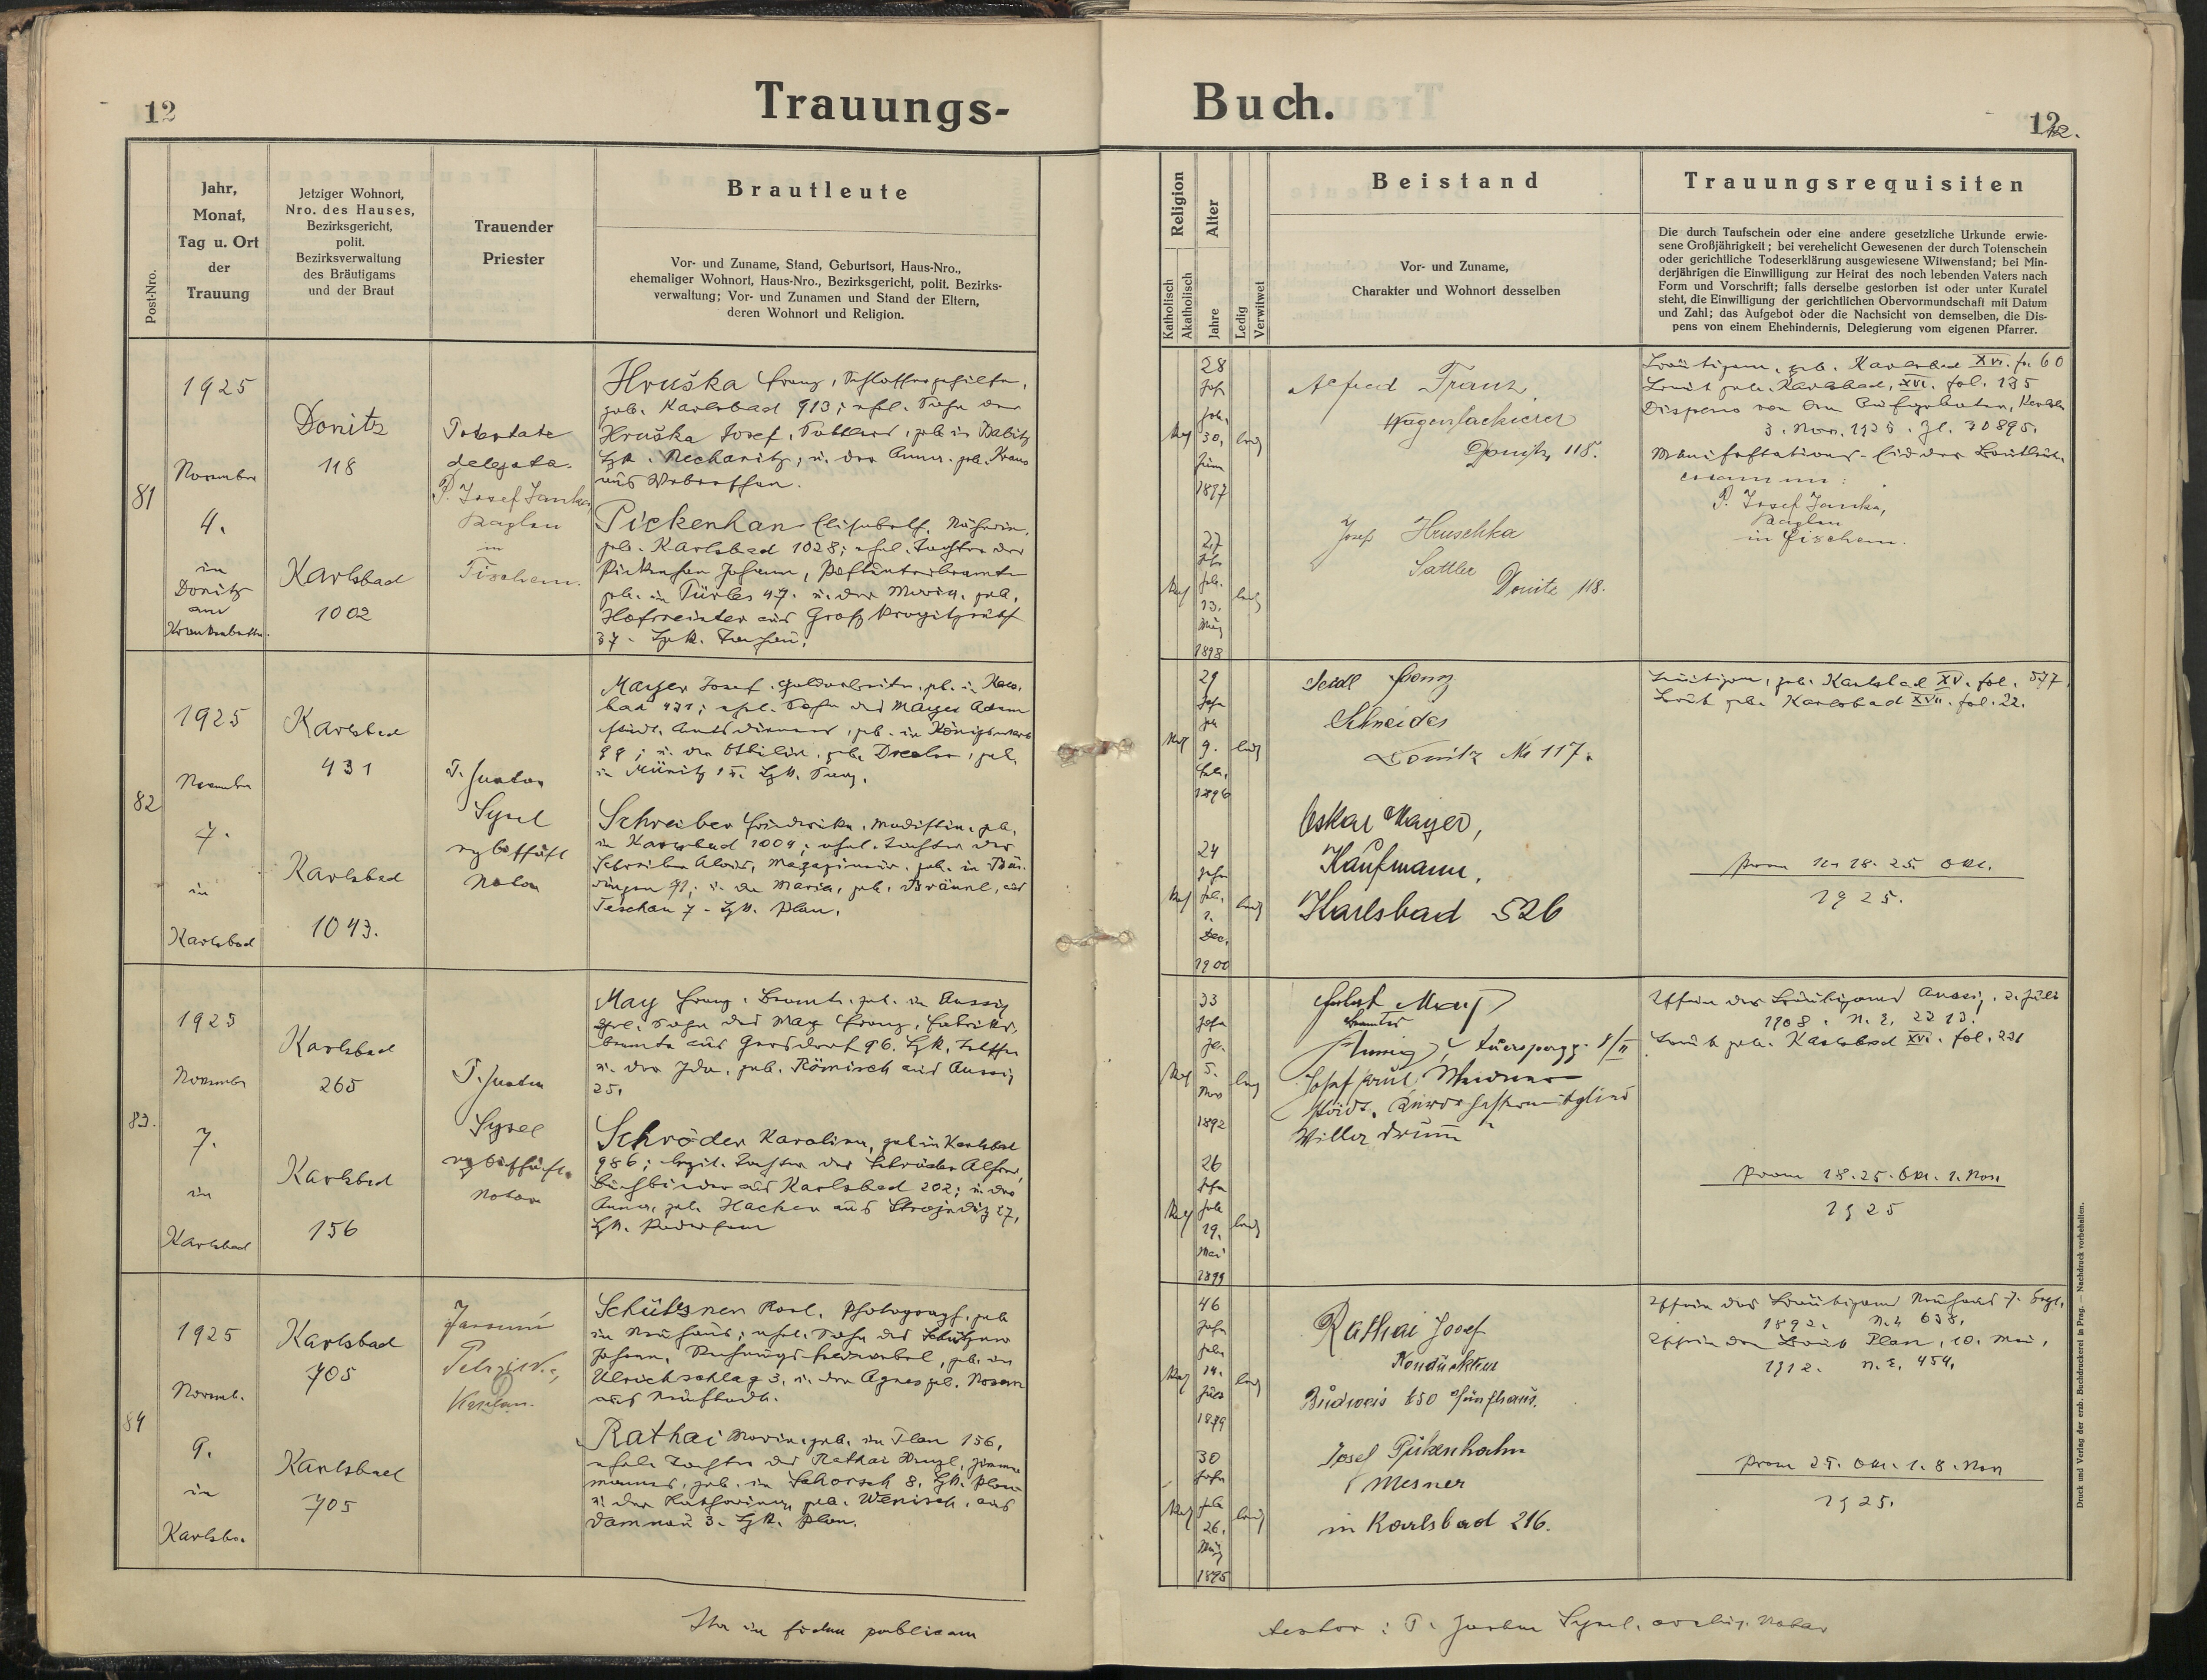 12
Trauungs-
Buch.
12
12.
Post-Nro.
Jahr,
Monat,
Tag u. Ort
der
Trauung
Jetziger Wohnort,
Nro. des Hauses,
Bezirksgericht,
polit.
Bezirksverwaltung
des Bräutigams
und der Braut
Trauender
Priester
Brautleute
Vor- und Zuname, Stand, Geburtsort, Haus-Nro.,
ehemaliger Wohnort, Haus-Nro., Bezirksgericht, polit. Bezirks-
verwaltung; Vor- und Zunamen und Stand der Eltern,
deren Wohnort und Religion.
Religion
Katholisch
Akatholisch
Alter
Jahre
Ledig
Verwitwet
Beistand
Vor- und Zuname,
Charakter und Wohnort desselben
Trauungsrequisiten
Die durch Taufschein oder eine andere gesetzliche Urkunde erwie-
sene Großjährigkeit; bei verehelicht Gewesenen der durch Totenschein
oder gerichtliche Todeserklärung ausgewiesene Witwenstand; bei Min-
derjährigen die Einwilligung zur Heirat des noch lebenden Vaters nach
Form und Vorschrift; falls derselbe gestorben ist oder unter Kuratel
steht, die Einwilligung der gerichtlichen Obervormundschaft mit Datum
und Zahl; das Aufgebot oder die Nachsicht von demselben, die Dis-
pens von einem Ehehindernis, Delegierung vom eigenen Pfarrer.
81
1925
November
4.
in
Donitz
am
Krankenbette.
Donitz
118
Karlsbad
1002
Potestate
delegata.
P. Josef Janka,
Kaplan
in
Fischern.
Hruška Franz, Schlossergehilfe,
geb. Karlsbad 913; ehel. Sohn des
Hruška Josef, Sattlers, geb. in Babitz
Bzk. Nechanitz, u. der Anna geb. Kraus
aus
Pickenhan Elisabeth, Näherin,
geb. Karlsbad 1028; ehel. Tochter des
Pickenhan Johann, Postunterbeamte
geb. in Türles 47. u. der Maria, geb.
Hofreiter aus Groß
37. Bzk. Tachau.
28
Jahr
geb.
30.
Juni
1897
Kath
ledig
27
Jahr
geb.
13.
März
1898
Kath
ledig
Alfred Franz,
Wagenlackierer
Donitz, 118.
Josef Hruschka
Sattler
Donitz 118.
Bräutigam, geb. Karlsbad XVI. fo. 60
Braut geb. Karlsbad, XVI. fol. 135
Dispens von den Aufgeboten, Karlsb.
3. Nov. 1925. Zl. 30895.
Manifestations-Eid der Brautleute
coram me:
P. Josef Janka,
Kaplan
in Fischern.
82
1925
November
7.
in
Karlsbad
Karlsbad
431
Karlsbad
1043.
P. Justus
Sysel
erzbischöfl.
Notar
Mayer Josef, Goldarbeiter, geb. in Karls-
bad 431; ehel. Sohn des Mayer Adam
städt. Amtsdieners, geb. in Königswart
99; u. der Ottilie, geb. Drexler, geb.
in Münitz
Schreiber Friederike, Modistin, geb.
in Karlsbad 1004; ehel. Tochter des
Schreiber Alois, Magazineur, geb. in
; u. der Maria, geb. Bräunl, aus
Teschau 7. Bzk. Plan.
29
Jahr
geb.
9.
Feb.
1896
Kath
ledig
24
Jahr
geb.
1.
Dec.
1900
Kath
ledig
Seidl Franz
Schneider
Donitz No 117.
Oskar Mayer,
Kaufmann,
Karlsbad 526
Bräutigam, geb. Karlsbad XV. fol. 577.
Braut geb. Karlsbad XVII. fol. 22.
prom 11. 18. 25. Okt.
1925.
83.
1925
November
7.
in
Karlsbad
Karlsbad
265
Karlsbad
156
P. Justus
Sysel
erzbischöfl.
Notar
May Franz, Beamte, geb. in Aussig
ehel. Sohn des May Franz, Fabriks-
beamte aus Gersdorf 96.
u. der Ida, geb. Römisch aus Aussig
25.
Schröder Karoline, geb. in Karlsbad
986; legit. Tochter des Schröder Alfred,
Buchbinder aus Karlsbad 202; u. der
Anna, geb. Hacker aus Strojeditz 27,
Bzk. Podersam
33
Jahr
geb.
5.
Nov
1892
Kath
ledig
26
Jahr
geb.
19.
Mai
1899
Kath
ledig
May
Beamter
Aussig,
Josef
Willer
Tfschein des Bräutigams Aussig, 2. Juli
1908. N. E. 2213.
Braut geb. Karlsbad XVI. fol. 231
prom 18. 25. Okt. 1. Nov.
1925
84
1925
Novemb.
9.
in
Karlsba.
Karlsbad
705
Karlsbad
705
Kaplan.
Schützner Karl, Photograph, geb.
in Neuhaus; ehel. Sohn des Schützner
Johann, Rechnungsfeldwebel, geb. in
Ulrichschlag 3. u. der Agnes geb.
aus
Rathai Marie, geb. in Plan 156,
ehel. Tochter des Rathai Wenzl, Zimmer-
mannes, geb. in Schorsch 8. Bzk. Plan
u. der Katharina geb. Wenisch, aus
Damnau 3. Bzk. Plan.
46
Jahr
geb.
14.
Juli
1879
Kath
ledig
30
Jahr
geb
26.
März
1895
Kath
ledig
Rathai Josef
Kondukteur
Budweis 150 Fünfhaus.
Josef Pickenhahn
Mesner
in Karlsbad 216.
Tfschein des Bräutigams Neuhaus 7. Sept.
1892. N. E. 638.
Tfschein der Braut Plan, 10. Mai,
1912. N. E. 454.
prom 25. Okt. 1. 8. Nov
1925.
in fidem publicam
testor: P. Justus Sysel, erzbisch. Notar
Druck und Verlag der erzb. Buchdruckerei in Prag. — Nachdruck vorbehalten.